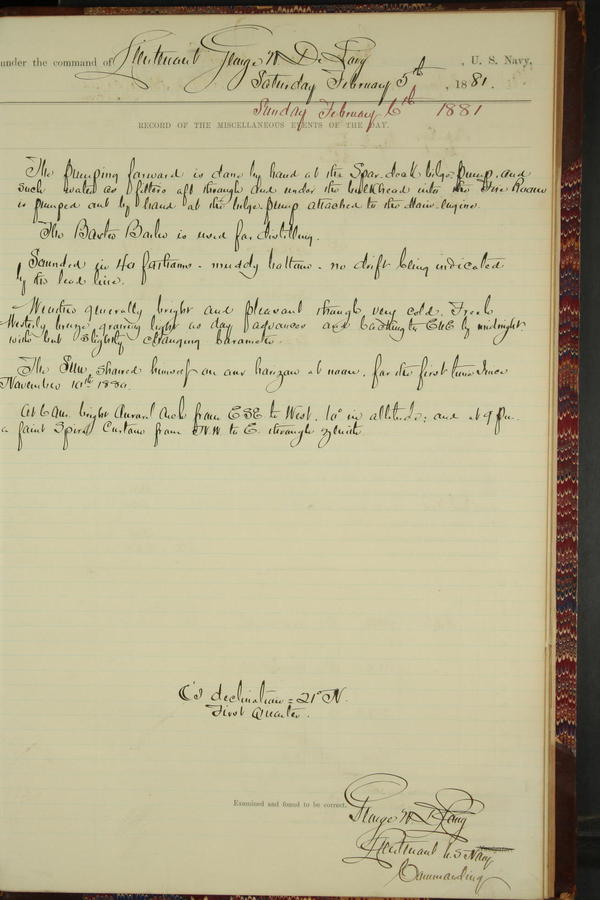 under the command of Lieutenant George W. De Long, U. S. Navy,
Saturday February 5th, 1881.
Sunday February 6th 1881
RECORD OF THE MISCELLANEOUS EVENTS OF THE DAY.
The pumping forward is done by hand at the Spar-deck bilge pump, and
such water as filters aft through and under the bulkhead into the Fire Room
is pumped out by hand at the bilge pump attached to the Main-engine.
The Baxter Boiler is used for distilling.
Sounded in 40 fathoms - muddy bottom - no drift being indicated
by the lead line.
Weather generally bright and pleasant though very cold. Fresh
Westerly breeze, growing light as day advances and backing to ESE by midnight.
with but slightly changing barometer.
The Sun showed himself on our horizon at noon, for the first time since
November 10th 1880.
At 6 am. bright Auroral Arch from ESE to West, 10° in altitude; and at 9 pm.
a faint Spiral Curtain from N.W. to E. through zenith.
☾'s declination = 21° N.
First Quarter.
Examined and found to be correct.
George W. De Long
Lieutenant U.S. Navy
Commanding